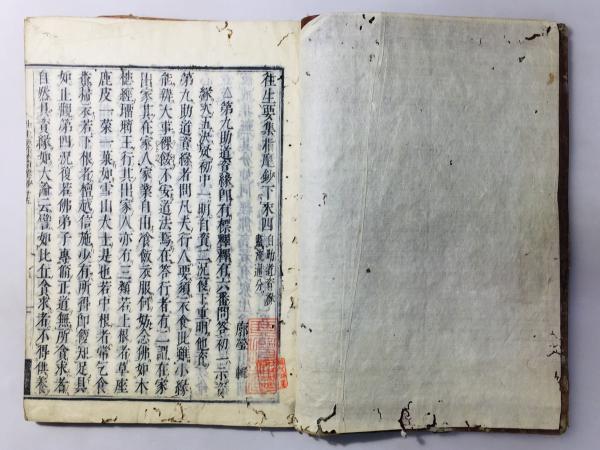 往生要集指麾鈔下末四 自助道資緣 盡流通分
第九助道資緣門有標釋釋有六番問答初二示資
緣次五決疑初中二一明自資二況復下重明他資
第九助道資緣者問凡夫行人要須衣食此雖小緣
能辨大事裸餒不安道法焉在答行者有二謂在家
出家其在家人家業自由飡飯衣服何妨念佛如木
槵經瑠璃王行其出家人亦有三類若上根者草座
鹿皮一菜一菓如雪山大士是也若中根者常乞食
糞掃衣若下根者檀越信施少有所得即便知足具
如止觀第四況復若佛弟子專脩正道無所貪求者
自然具資緣如大論云譬如比丘貪求者不得供養